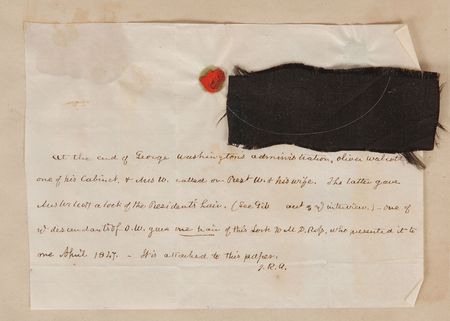 At the end of George Washington's administration, Oliver Wolcott
one of his Cabinet, & Mrs W. called on Prest W. & his wife. The latter gave
Mrs Wolcott a lock of the President's hair. (See of interview.) - one of
descendants of O.W. gave one hair of this lock to M. D. Ross, who presented it to
me April 1847. - It is attached to this paper.
J.R.A.